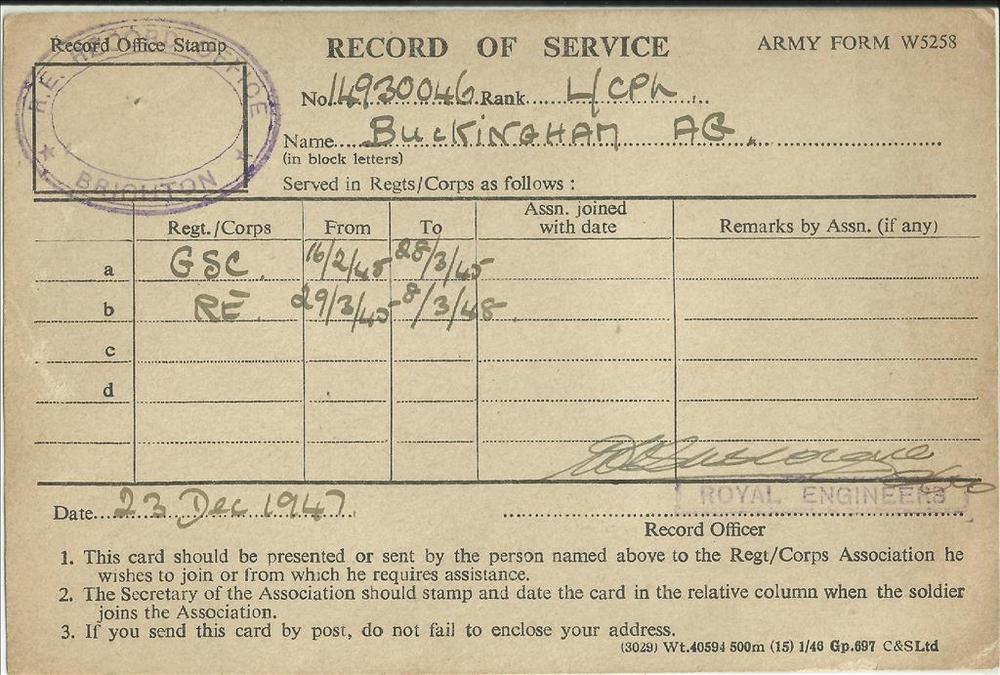 Record Office Stamp
R.E. RECORD OFFICE
BRIGHTON
RECORD OF SERVICE
ARMY FORM W5258
No. 14930046 Rank L/CPL
Name BUCKINGHAM AG.
(in block letters)
Served in Regts/Corps as follows :
Regt./Corps From To Assn. joined with date Remarks by Assn. (if any)
a GSC. 16/2/45 28/3/45
b RE. 29/3/45 8/3/48.
c
d
ROYAL ENGINEERS
Date 23 Dec 1947.
Record Officer
1. This card should be presented or sent by the person named above to the Regt/Corps Association he
wishes to join or from which he requires assistance.
2. The Secretary of the Association should stamp and date the card in the relative column when the soldier
joins the Association.
3. If you send this card by post, do not fail to enclose your address.
(3029) Wt.40594 500m (15) 1/46 Gp.697 C&S Ltd